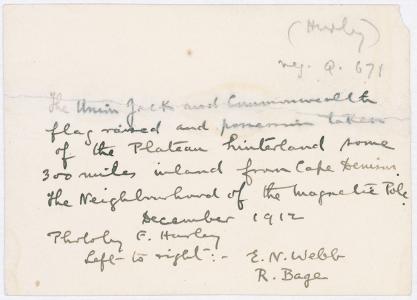 (Hurley)
neg. Q. 671
The Union Jack and Commonwealth
flag raised and possession taken
of the Plateau hinterland some
300 miles inland from Cape Denison.
The Neighbourhood of the Magnetic Pole.
December 1912
Photo by F. Hurley
Left to right:- E. N. Webb
R. Bage